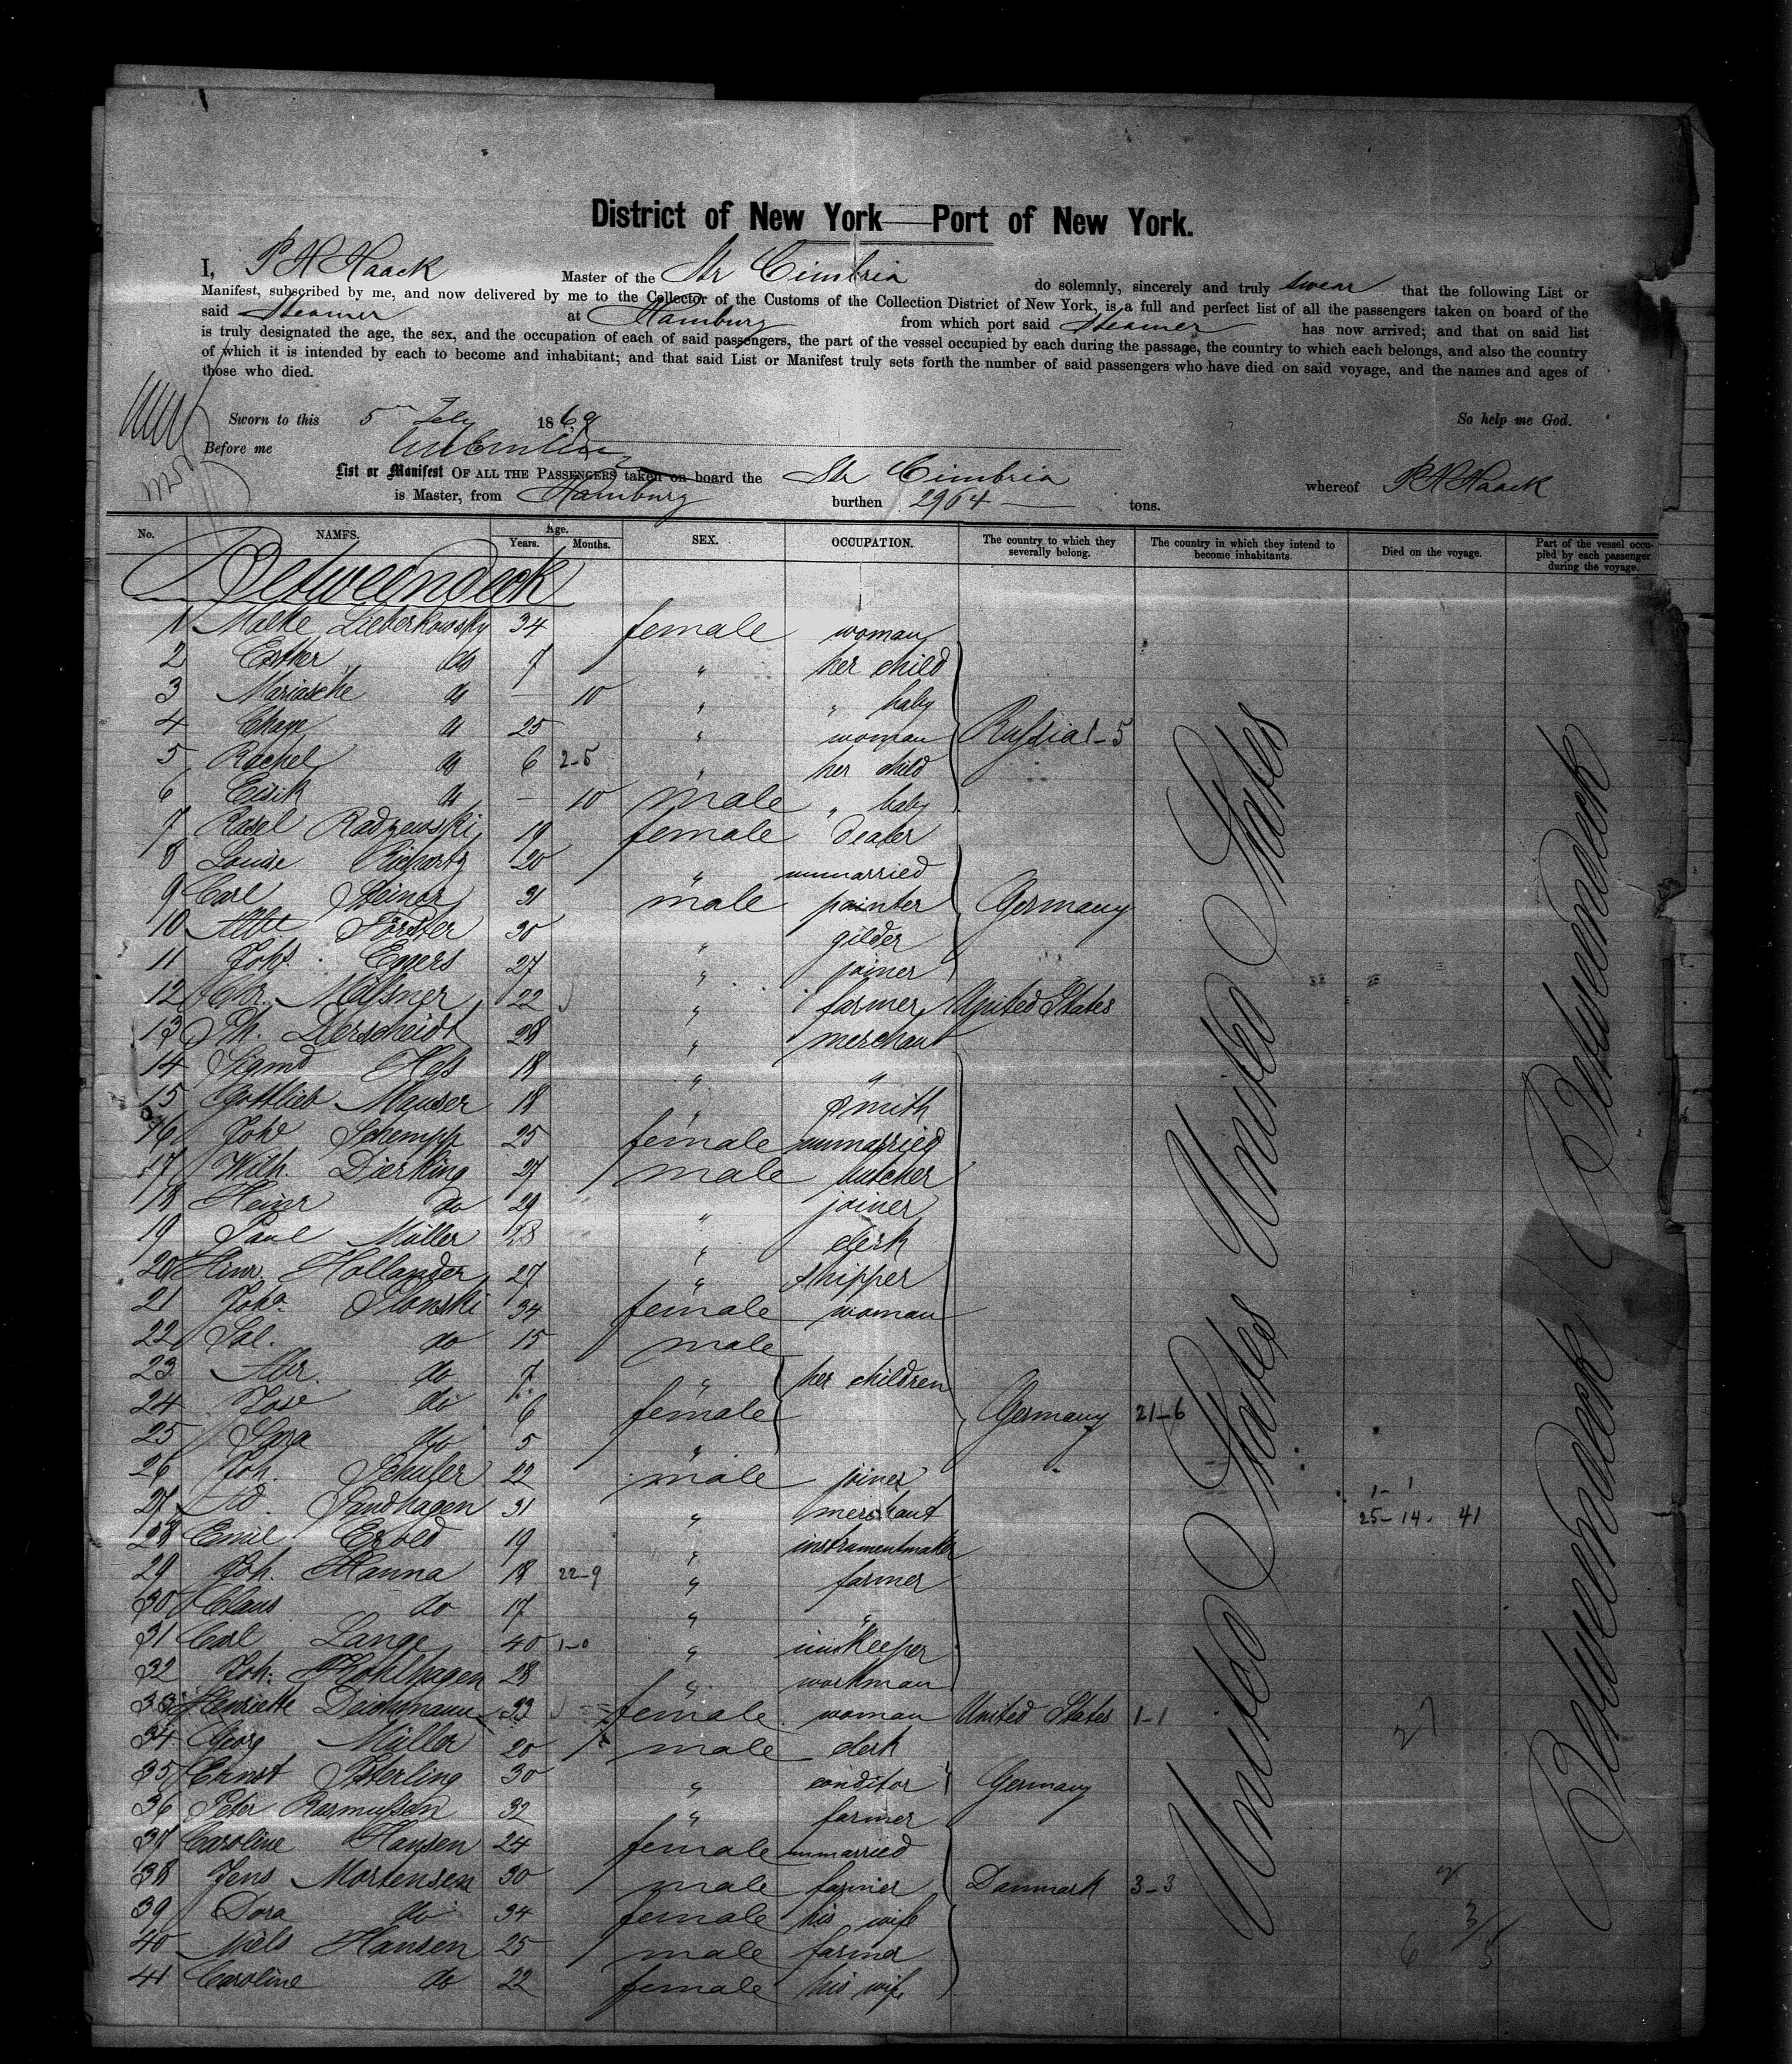 District of New York—Port of New York.
I, P H Haack Master of the Str Cimbria do solemnly, sincerely and truly swear that the following List or
Manifest, subscribed by me, and now delivered by me to the Collector of the Customs of the Collection District of New York, is a full and perfect list of all the passengers taken on board of the
said Steamer at Hamburg from which port said Steamer has now arrived; and that on said list
is truly designated the age, the sex, and the occupation of each of said passengers, the part of the vessel occupied by each during the passage, the country to which each belongs, and also the country
of which it is intended by each to become and inhabitant; and that said List or Manifest truly sets forth the number of said passengers who have died on said voyage, and the names and ages of
those who died.
So help me God.
Sworn to this 5 July 1869
Before me
List or Manifest OF ALL THE PASSENGERS taken on board the Str Cimbria whereof P H Haack
is Master, from Hamburg burthen 2964 tons.
No. NAMES. Age. Years. Months. SEX. OCCUPATION. The country to which they severally belong. The country in which they intend to become inhabitants. Died on the voyage. Part of the vessel occupied by each passenger during the voyage.
Betweendeck
1 Malke Lieberkowsky 34 female woman
2 Esther do 7 " her child
3 Mariasche do — 10 " " baby
4 Chaye do 25 " woman Russia 1-5
5 Rachel do 6 2-5 " her child
6 Eisik do — 10 male " baby
7 Rasel Radzewski 19 female dealer
8 Louise 20 " unmarried
9 Carl Steiner 31 male painter Germany
10 Förster 30 " gilder
11 Johs. Eggers 27 " joiner
12 Chr. Messner 22 " farmer United States
13 Ph. Derscheidt 28 " merchant
14 Sigmd Hess 18 " "
15 Gottlieb Mauser 18 " smith
16 Joha Schempp 25 female unmarried
17 Wilh. Dierking 27 male butcher
18 Heinr do 29 " joiner
19 Paul Müller 23 " clerk
20 Hinr. Hollander 27 " shipper
21 Joha Slonski 34 female woman
22 Sal. do 15 male
23 Abr. do 7 " her children
24 Rose do 6 female Germany 21-6
25 Sara do 5 "
26 Joh. Schufer 22 male joiner
27 Ad. Sandhagen 31 " merchant
28 Emil 19 " instrumentmaker
29 Joh. Hanna 18 22-9 " farmer
30 Claus do 17 " "
31 Carl Lange 40 1-0 " innkeeper
32 Joh. Wohlhagen 28 " workman
33 Henriette Dachmann 33 female woman United States 1-1
34 Georg Müller 20 male clerk
35 Ernst Isterling 30 " conditor Germany
36 Peter Rasmussen 32 " farmer
37 Caroline Hansen 24 female unmarried
38 Jens Mortensen 30 male farmer Danmark 3-3
39 Dora do 34 female his wife
40 Niels Hansen 25 male farmer
41 Caroline do 22 female his wife
United States United States
Betweendeck Betweendeck
1-1
25-14. 41